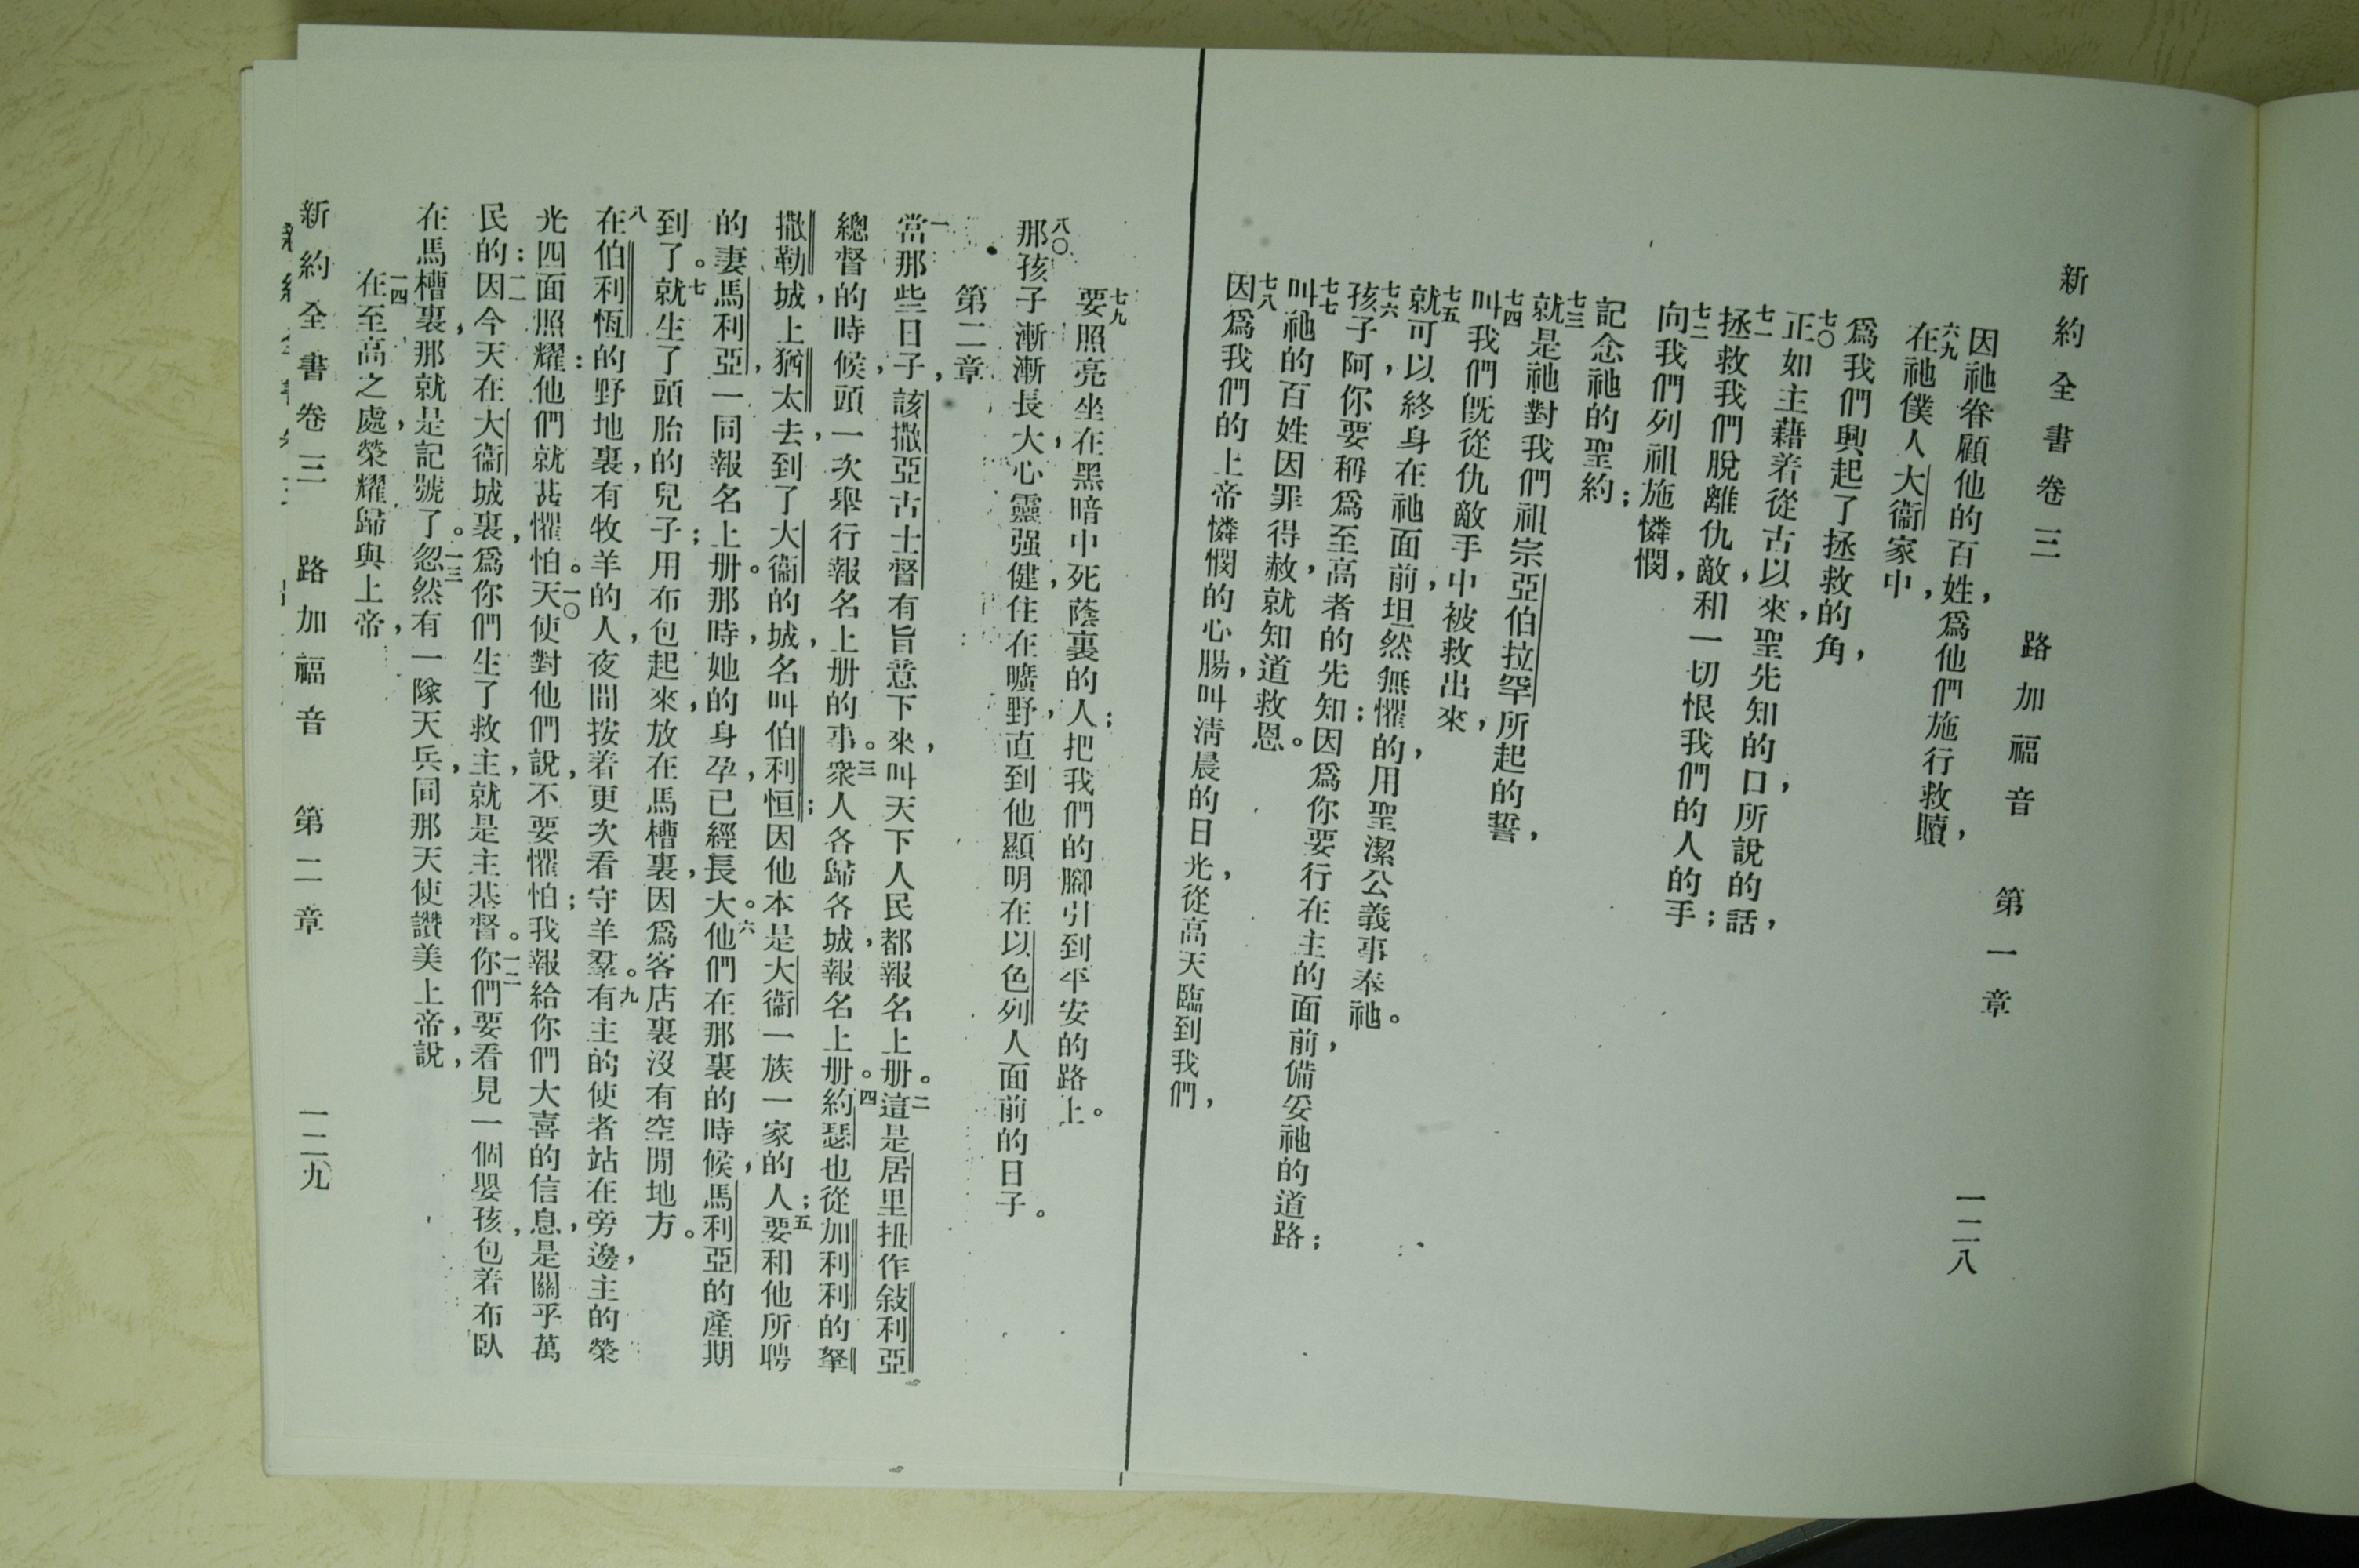 新約全書卷三 路加福音 第一章 一二八
因祂眷顧他的百姓，爲他們施行救贖，
六九在祂僕人大衞家中，
爲我們興起了拯救的角，
七〇正如主藉着從古以來，聖先知的口，所說的話，
七一拯救我們脫離仇敵，和一切恨我們的人的手；
七二向我們列祖施憐憫，
記念祂的聖約；
七三就是祂對我們祖宗亞伯拉罕所起的誓，
七四叫我們旣從仇敵手中被救出來，
七五就可以終身在祂面前，坦然無懼的，用聖潔公義事奉祂。
七六孩子阿，你要稱爲至高者的先知：因爲你要行在主的面前，備妥祂的道路；
七七叫祂的百姓因罪得赦，就知道救恩。
七八因爲我們的上帝憐憫的心腸，叫淸晨的日光，從高天臨到我們，
七九要照亮坐在黑暗中死蔭裏的人；把我們的腳引到平安的路上。
八〇那孩子漸漸長大，心靈强健，住在曠野，直到他顯明在以色列人面前的日子。
第二章
一當那些日子，該撒亞古士督有旨意下來，叫天下人民都報名上册。二這是居里扭作敍利亞
總督的時候，頭一次舉行報名上册的事。三衆人各歸各城，報名上册。四約瑟也從加利利的拏
撒勒城，上猶太去，到了大衞的城，名叫伯利恒；因他本是大衞一族一家的人；五要和他所聘
的妻馬利亞，一同報名上册。那時，她的身孕，已經長大。六他們在那裏的時候，馬利亞的產期
到了。七就生了頭胎的兒子；用布包起來，放在馬槽裏，因爲客店裏沒有空閒地方。
八在伯利恆的野地裏，有牧羊的人，夜間按着更次看守羊羣。九有主的使者站在旁邊，主的榮
光四面照耀：他們就甚懼怕。一〇天使對他們說，不要懼怕；我報給你們大喜的信息，是關乎萬
民的：一一因今天在大衞城裏，爲你們生了救主，就是主基督。一二你們要看見一個嬰孩，包着布臥
在馬槽裏，那就是記號了。一三忽然有一隊天兵，同那天使讚美上帝，說，
一四在至高之處，榮耀歸與上帝，
新約全書卷三 路加福音 第二章 一二九